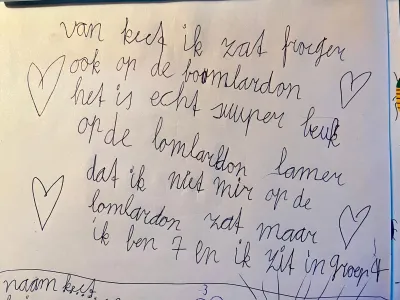 van keet ik zat froeger
ook op de boomlardon
het is echt suuper leuk
op de lomlardon lamer
dat ik niet mir op de
lomlardon zat maar
ik ben 7 en ik zit in groep 4
naam keet